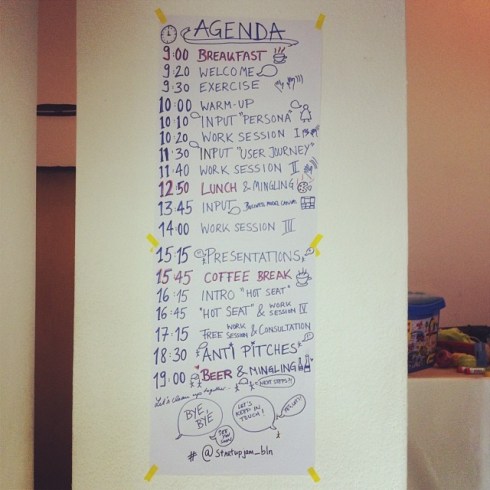 AGENDA
9:00 BREAKFAST
9:20 WELCOME
9:30 EXERCISE
10:00 WARM-UP
10:10 INPUT "PERSONA"
10:20 WORK SESSION I
11:30 INPUT "USER JOURNEY"
11:40 WORK SESSION II
12:50 LUNCH & MINGLING
13:45 INPUT BUSINESS MODEL CANVAS
14:00 WORK SESSION III
15:15 PRESENTATIONS
15:45 COFFEE BREAK
16:15 INTRO "HOT SEAT"
16:45 "HOT SEAT" & WORK SESSION IV
17:15 FREE WORK SESSION & CONSULTATION
18:30 ANTI PITCHES
19:00 BEER & MINGLING
NEXT STEPS!!
Let's clean up together...
BYE, BYE
LET'S KEEP IN TOUCH!
# @startupjam_bln